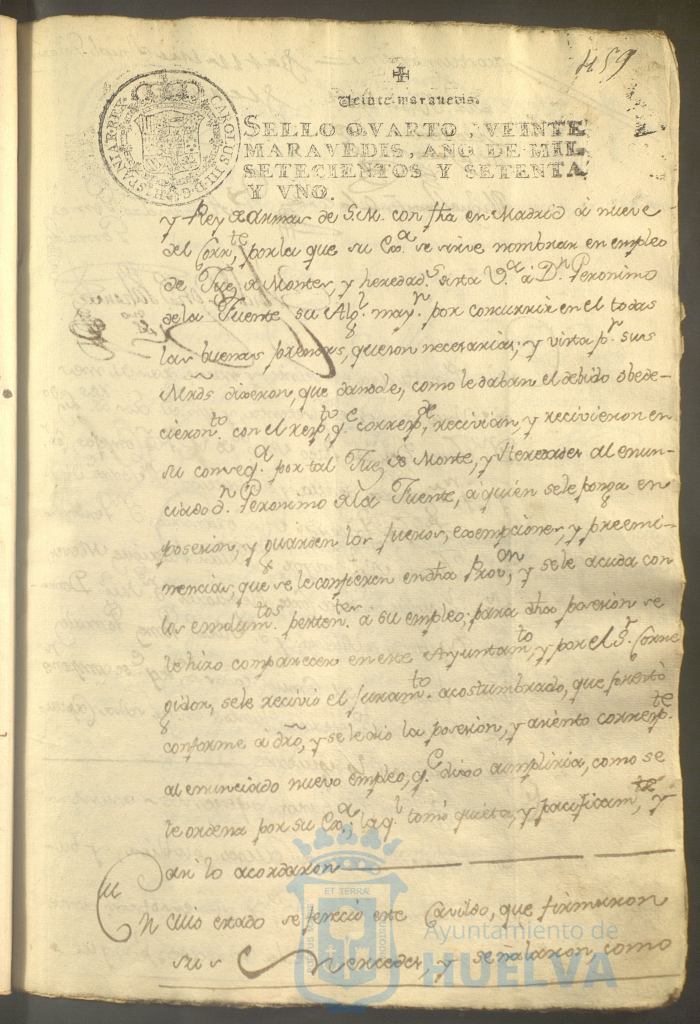 459
Veinte maravedis.
SELLO QVARTO, VEINTE
MARAVEDIS, AÑO DE MIL
SETECIENTOS Y SETENTA
Y VNO.
CAROLUS III D G HISPANIAR REX
y Rey de Armas de S.M. con fha en Madrid á nueve
del Corrte, por la que su Exa se sirve nombrar en empleo
de Juez de Montes, y heredads de esta Va á Dn Geronimo
de la Fuente su Algl mayr por concurrir en el todas
las buenas prendas, que son necesarias; y vista pr sus
Mrds dixeron, que dandole, como le daban el debido obede-
cimto con el respto qe correspde, recivian, y recivieron en
su conseqa por tal Juez de Monte, y Heredades al enun-
ciado Dn Geronimo de la Fuente, á quien se le ponga en
posesion, y guarden los fueros, exempciones, y preemi-
nencias, que se le confieren en dha Provon, y se le acuda con
los emolumtos pertentes á su empleo; para dha posesion se
le hizo comparecer en este Ayuntamto, y por el Sr Corre
gidor, se le recivió el juramto acostumbrado, que prestó
conforme a dro, y se le dio la posesion, y asiento correspte
al enunciado nuevo empleo, qe dixo cumpliria, como se
le ordena por su Exa; la ql tomó quieta, y pacificamte, y
asi lo acordaron
En cuio estado se feneció este Cavildo, que firmaron
sus Mercedes, y señalaron como
ET TERRÆ
Ayuntamiento de
HUELVA